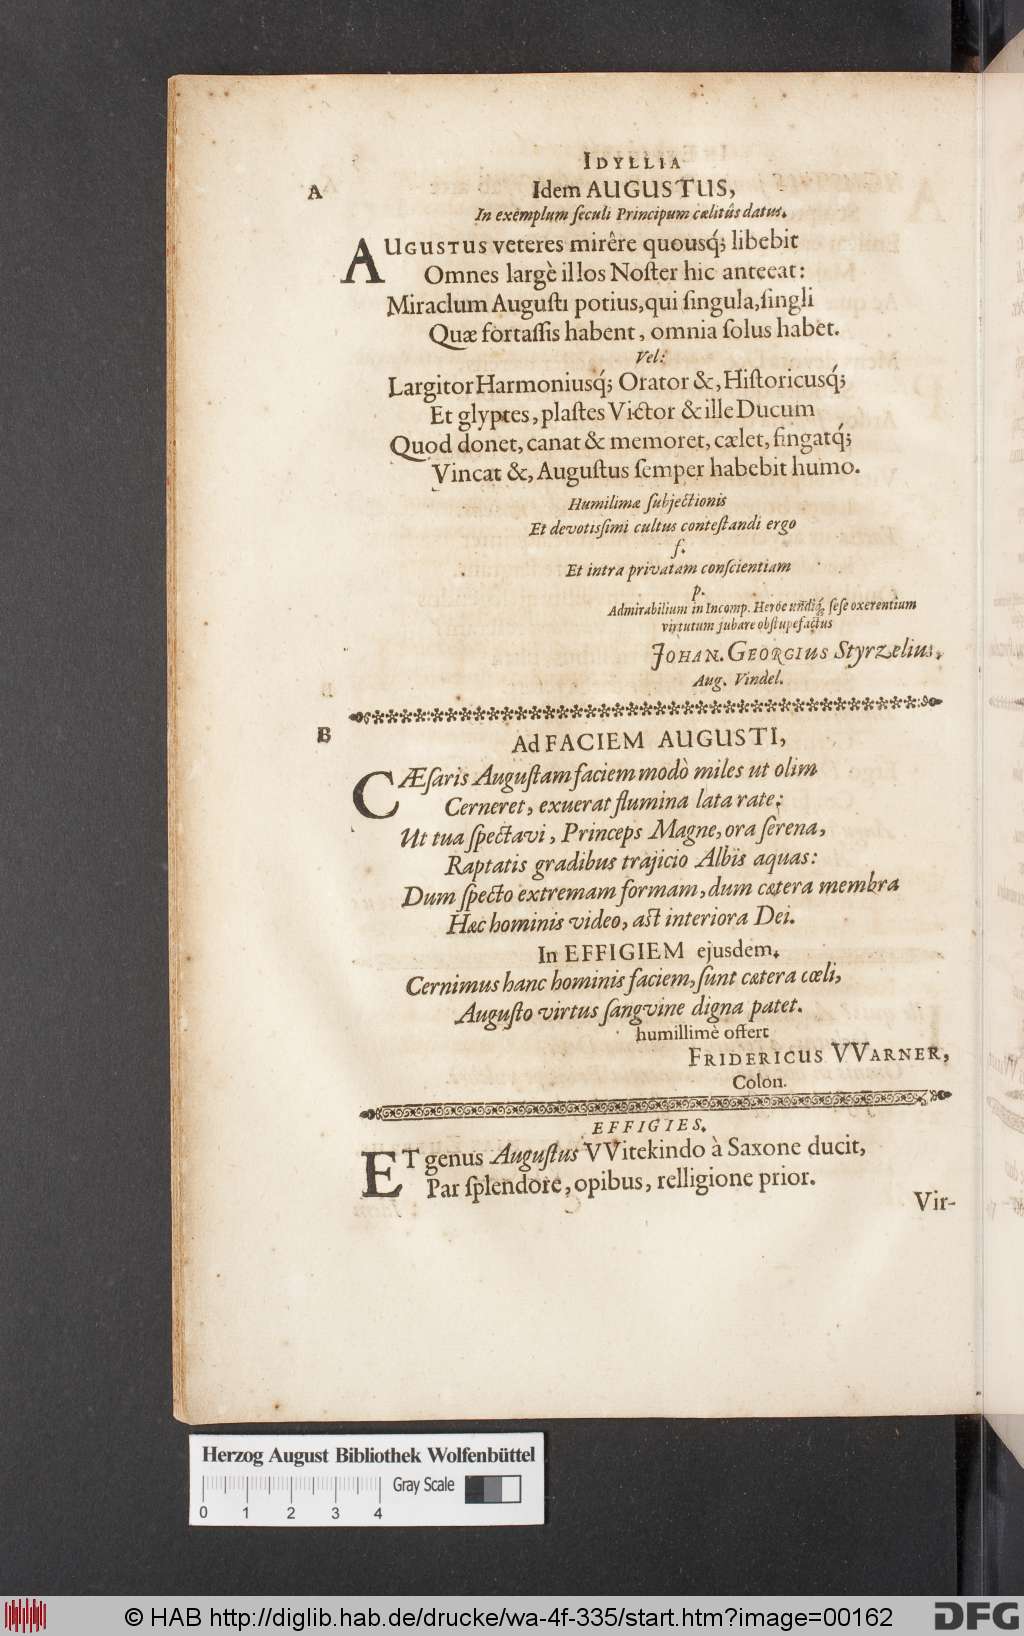 IDYLLIA
A
Idem AUGUSTUS,
In exemplum ſeculi Principum cælitûs datus.
AUGUSTUS veteres mirêre quousq́; libebit
Omnes largè illos Noſter hic anteeat:
Miraclum Auguſti potius, qui ſingula, ſingli
Quæ fortaſſis habent, omnia ſolus habet.
Vel:
Largitor Harmoniusq́; Orator &, Hiſtoricusq́;
Et glyptes, plaſtes Victor & ille Ducum
Quod donet, canat & memoret, cælet, fingatq́;
Vincat &, Auguſtus ſemper habebit humo.
Humilimæ ſubjectionis
Et devotisſimi cultus conteſtandi ergo
f.
Et intra privatam conſcientiam
p.
Admirabilium in Incomp. Heröe undiq́; ſeſe oxerentium
virtutum jubare obſtupefactus
JOHAN. GEORGIUS Styrzelius,
Aug. Vindel.
B
Ad FACIEM AUGUSTI,
CÆſaris Auguſtam faciem modò miles ut olim
Cerneret, exuerat flumina lata rate;
Ut tua ſpectavi, Princeps Magne, ora ſerena,
Raptatis gradibus trajicio Albis aquas:
Dum ſpecto extremam formam, dum cætera membra
Hæc hominis video, aſt interiora Dei.
In EFFIGIEM ejusdem.
Cernimus hanc hominis faciem, ſunt cætera cœli,
Auguſto virtus ſangvine digna patet.
humillimè offert
FRIDERICUS VVARNER,
Colon.
EFFIGIES.
ET genus Auguſtus VVitekindo à Saxone ducit,
Par ſplendore, opibus, relligione prior.
Vir-
Herzog August Bibliothek Wolfenbüttel
Gray Scale
0 1 2 3 4
© HAB http://diglib.hab.de/drucke/wa-4f-335/start.htm?image=00162
DFG